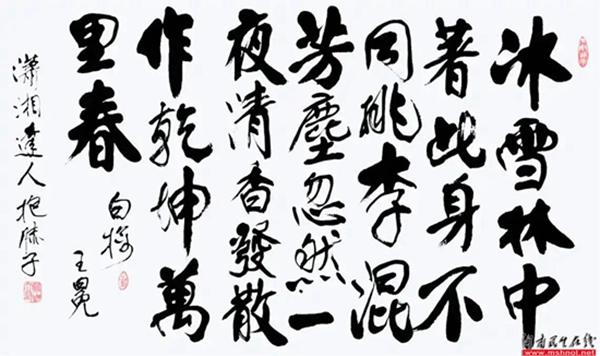 冰雪林中
著此身不
同桃李混
芳塵忽然一
夜清香發散
作乾坤萬
里春
白梅
王冕
瀟湘達人抱膝子
湖南民生在线
www.mshnol.net